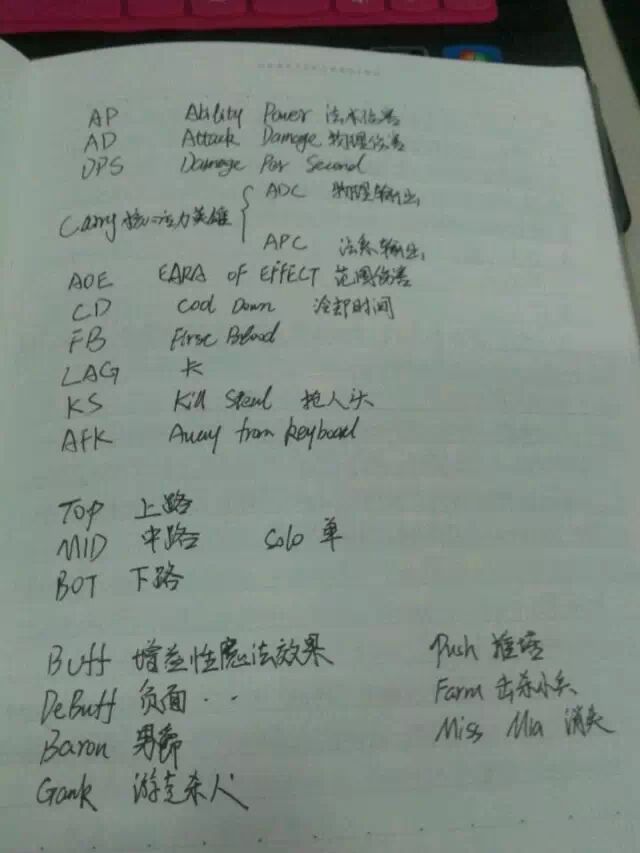 AP Ability Power 法术伤害
AD Attack Damage 物理伤害
DPS Damage Par Second
ADC 物理输出
Carry 核心主力英雄
APC 法系输出
AOE EARA OF EFFECT 范围伤害
CD Cool Down 冷却时间
FB First Blood
LAG 卡
KS Kill Steal 抢人头
AFK Away from keyboard
TOP 上路
MID 中路 Solo 单
BOT 下路
Buff 增益性魔法效果
DeBuff 负面 · ·
Baron 男爵
Gank 游走杀人
Push 推塔
Farm 击杀小兵
Miss Mia 消失